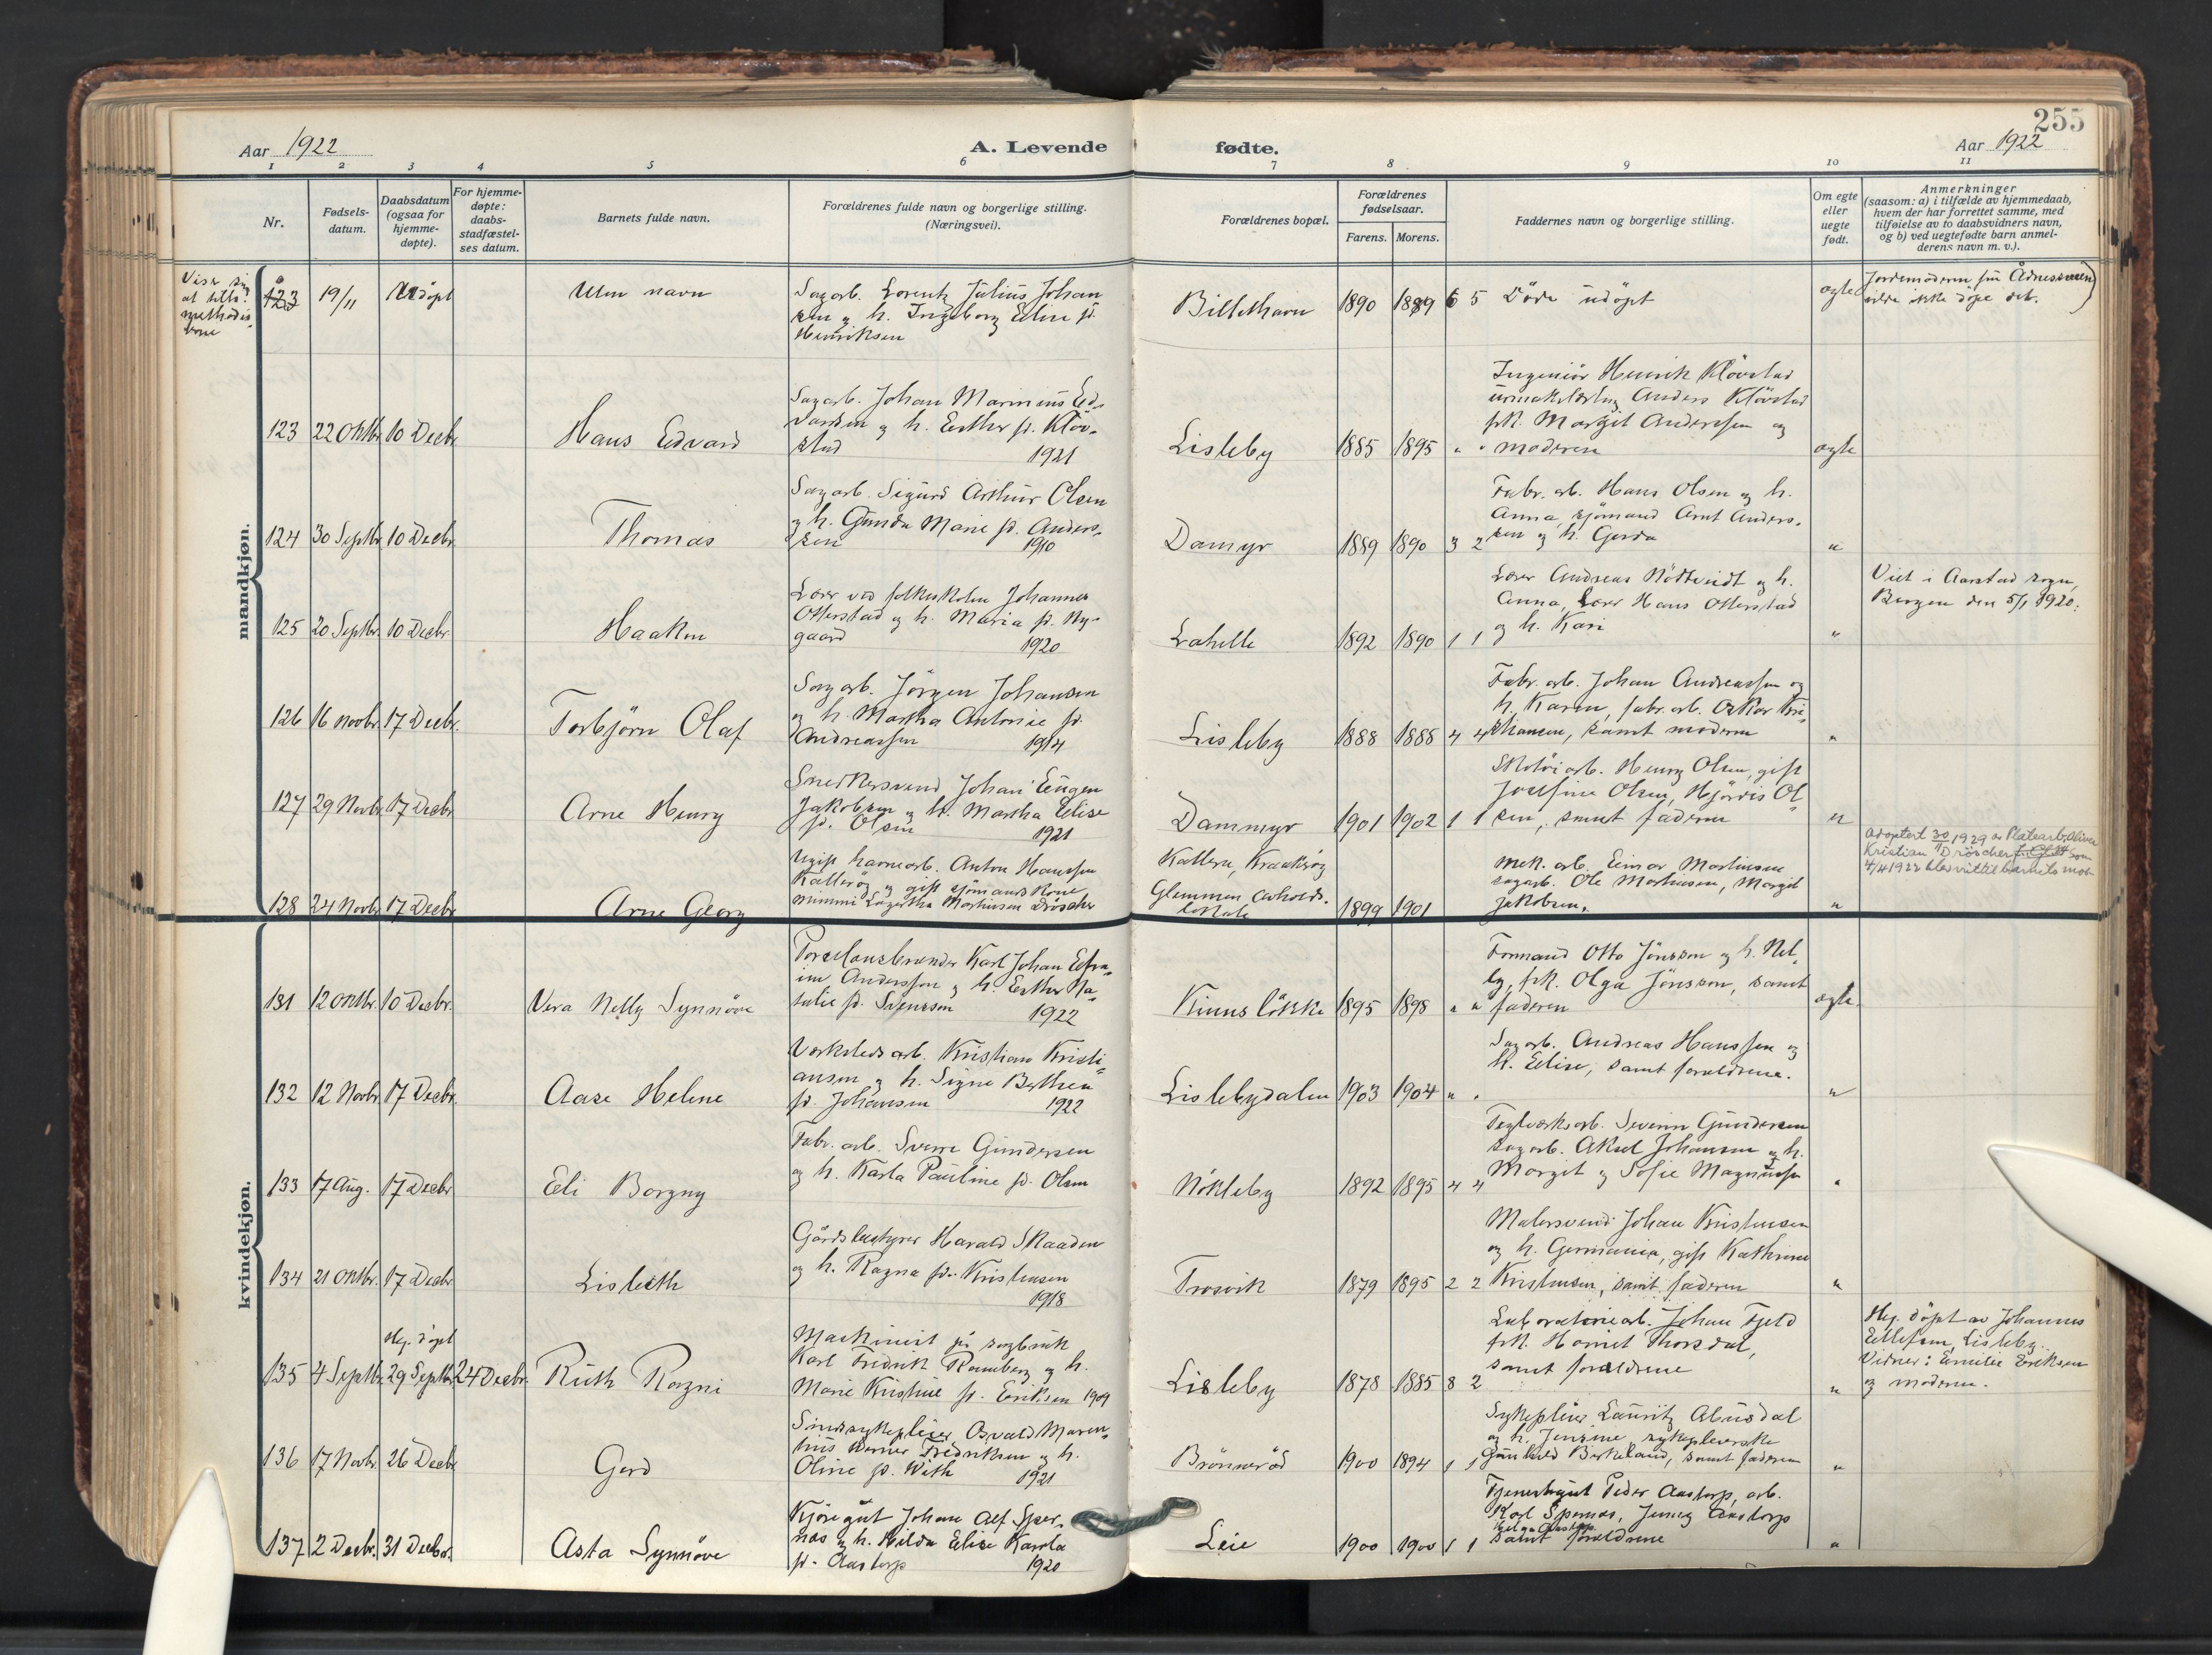 255
Aar 1922
A. Levende
fødte.
Aar 1922
1 2 3 4 5 6 7 8 9 10 11
Nr.
Fødsels-
datum.
Daabsdatum
(ogsaa for
hjemme-
døpte).
For hjemme-
døpte:
daabs-
stadfæstel-
ses datum.
Barnets fulde navn.
Forældrenes fulde navn og borgerlige stilling.
(Næringsvei).
Forældrenes bopæl.
Forældrenes
fødselsaar.
Farens. Morens.
Faddernes navn og borgerlige stilling.
Om egte
eller
uegte
født.
Anmerkninger
(saasom: a) i tilfælde av hjemmedaab,
hvem der har forrettet samme, med
tilføielse av to daabsvidners navn,
og b) ved uegtefødte barn anmel-
derens navn m. v.).
mandkjøn.
Viser sig
at tilh.
methodis
terne
123 19/11 Udöpt Uten navn
Sagarb. Lorentz Julius Johan
sen og h. Ingeborg Eline f.
Henriksen
Billethavn 1890 1889 6 5 Döde udöpt
egte
Jordemoderen
vilde ikke döpe det.
123 22 Oktbr. 10 Decbr. Hans Edvard
Sagarb. Johan Marinius Ed-
vardsen og h. Esther f. Klöv-
stad 1921
Lisleby 1885 1895 " "
Ingeniör Henrik Klövstad
urmakerlærling Anders Klövstad
frk. Margit Anderssen og
moderen
egte
124 30 Septbr. 10 Decbr. Thomas
Sagarb. Sigurd Arthur Olsen
og h. Gunda Marie f. Anders-
sen 1910
Damyr 1889 1890 3 2
Fabr. arb. Hans Olsen og h.
Anna, sjömand Arnt Anders-
sen og h. Gerda
"
125 20 Septbr. 10 Decbr. Haakon
Lærer ved folkeskolen Johannes
Otterstad og h. Maria f. Ny-
gaard 1920
Lahelle 1892 1890 1 1
Lærer Andreas Nödtvedt og h.
Anna, Lærer Hans Otterstad
og h. Kari
"
Viet i Aarstad sogn,
Bergen den 5/1 1920.
126 16 Novbr. 17 Decbr. Torbjörn Olaf
Sagarb. Jörgen Johansen
og h. Martha Antonie f.
Andreassen 1914
Lisleby 1888 1888 4 4
Fabr. arb. Johan Andreassen og
h. Karen, fabr. arb. Oskar Kri-
stiansen, samt moderen
"
127 29 Novbr. 17 Decbr. Arne Henry
Snedkersvend Johan Eugen
Jakobsen og h. Martha Elise
f. Olsen 1921
Dammyr 1901 1902 1 1
Skotöiarb. Henry Olsen, gift
Josefine Olsen, Hjördis Ol
sen, samt faderen
"
128 24 Novbr. 17 Decbr. Arne Georg
Ugift havnearb. Anton Hanssen
Kallerög og gift sjömands kone
Mimmi Lagertha Martinsen Dröscher
Kallera, Kraakröy
Glemmen avholds-
lokale 1899 1901
Mek. arb. Einar Martinsen
sagarb. Ole Martinsen, Margit
Jakobsen.
"
Adoptert 30/11 1929 av Platearb. Oliver
Kristian Dröscher som
4/4 1922 blev viet til barnets mor
kvindekjøn.
131 12 Oktbr. 10 Decbr. Vera Nelly Synnöve
Porcelænsbrænder Karl Johan Efra-
im Andersson og h. Esther Na-
talie f. Svensson 1922
Kinnslökke 1895 1898 " "
Formand Otto Jönsson og h. Nel-
ly, frk. Olga Jönsson, samt
faderen
egte
132 12 Novbr. 17 Decbr. Aase Helene
Verkstedsarb. Kristian Kristi
ansen og h. Signe Berthea
f. Johansen 1922
Lislebydalen 1903 1904 " "
Sagarb. Andreas Hanssen og
h. Elise, samt forældrene.
"
133 17 Aug. 17 Decbr. Eli Borgny
Fabr. arb. Sverre Gundersen
og h. Karla Pauline f. Olsen
Nökleby 1892 1895 4 4
Teglverksarb. Severin Gundersen
sagarb. Aksel Johansen og h.
Margit og Sofie Magnussen
"
134 21 Oktbr. 17 Decbr. Lisbeth
Gårdsbestyrer Harald Skaaden
og h. Ragna f. Kristensen
1918
Trosvik 1879 1895 2 2
Malersvend Johan Kristensen
og h. Germania, gift Kathrine
Kristensen, samt faderen
"
Hj. döpt
135 4 Septbr. 29 Septbr. 24 Decbr. Ruth Ragni
Maskinist på sagbruk
Karl Fredrik Ramberg og h.
Marie Kristine f. Eriksen 1909
Lisleby 1878 1885 8 2
Laboratoriearb. Johan Fjeld
frk. Harriet Thorsdal,
samt forældrene
"
Hj. döpt av Johannes
Ellefsen, Lisleby.
Vidner: Emilie Eriksen
og moderen.
136 17 Novbr. 26 Decbr. Gerd
Sindssykepleier Osvald Maren-
tius Werner Fredriksen og h.
Oline f. With 1921
Brönneröd 1900 1894 1 1
Sykepleier Lauritz Abusdal
og h. Jensine, sykepleierske
Gunhild Birkeland, samt faderen
"
137 2 Decbr. 31 Decbr. Asta Synnöve
Kjöregut Johan Alf Sper-
næs og h. Hilda Elise Karola
f. Aastorp 1920
Leie 1900 1900 1 1
Tjenestegut Peder Aastorp, arb.
Karl Spernæs, Jenny Aastorp
Helga Aastorp
samt forældrene
"